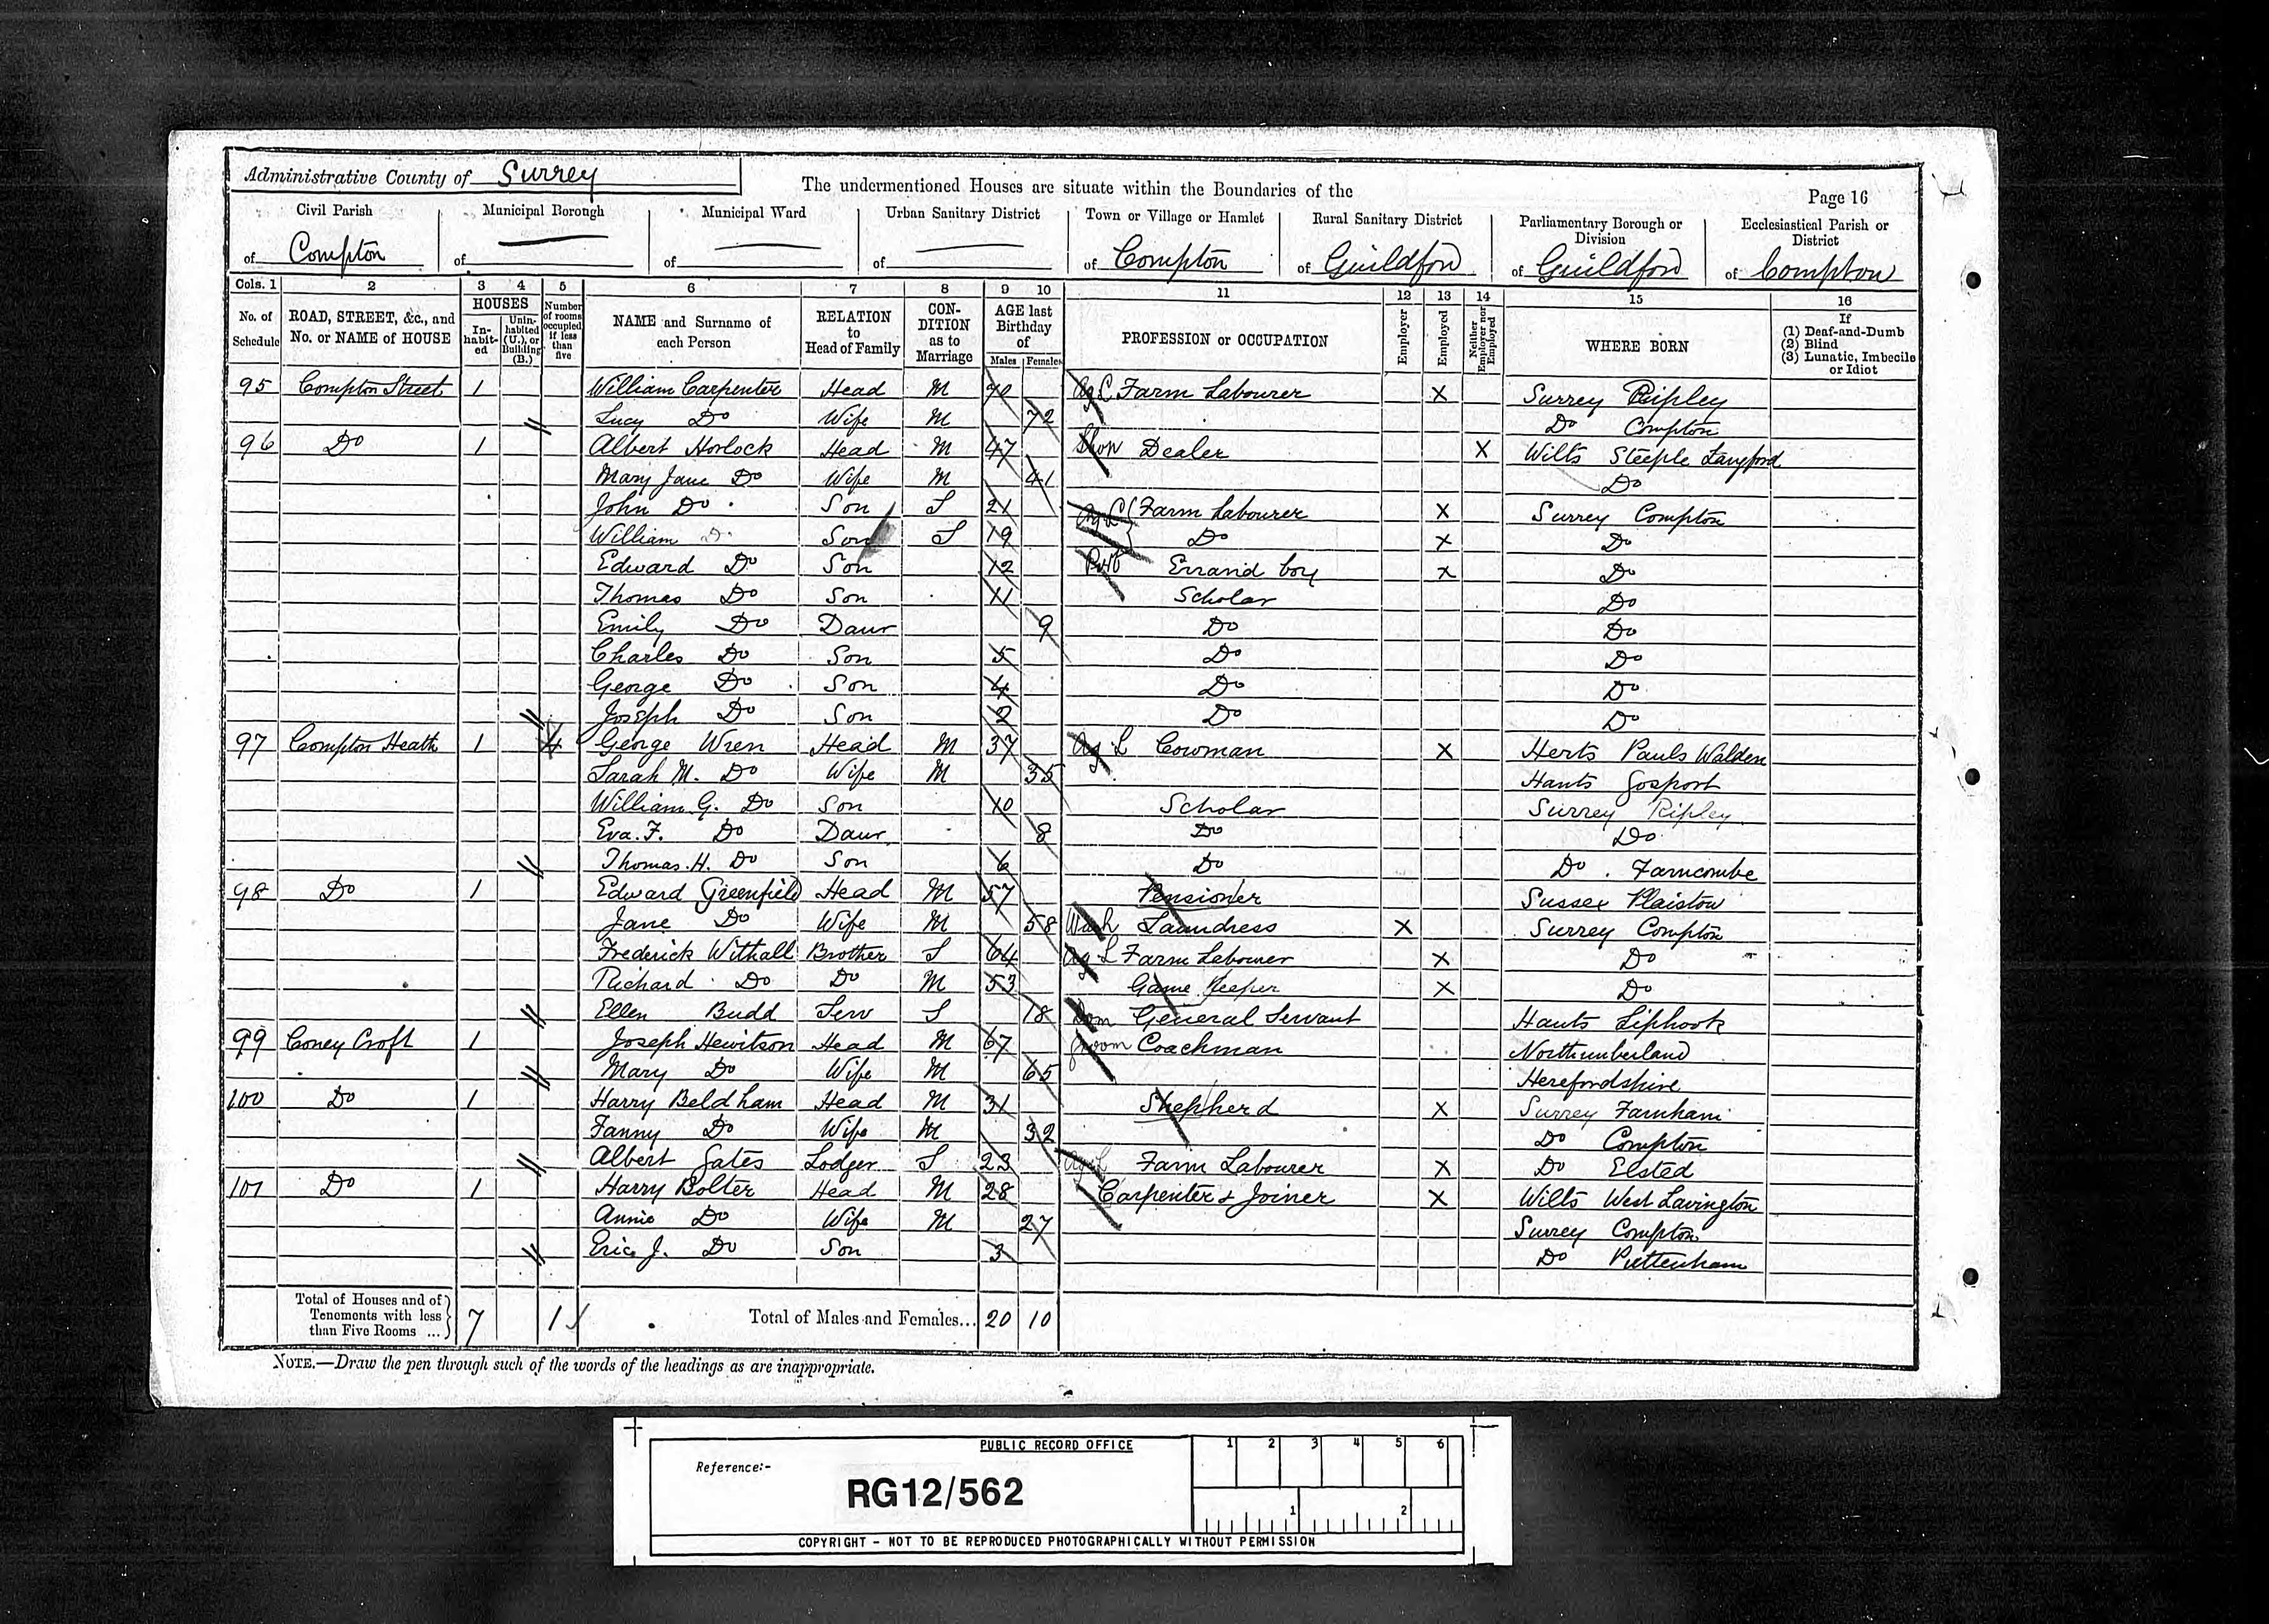 Administrative County of Surrey
The undermentioned Houses are situate within the Boundaries of the
Page 16
Civil Parish of Compton
Municipal Borough of
Municipal Ward of
Urban Sanitary District of
Town or Village or Hamlet of Compton
Rural Sanitary District of Guildford
Parliamentary Borough or Division of Guildford
Ecclesiastical Parish or District of Compton
Cols. 1 2 3 4 5 6 7 8 9 10 11 12 13 14 15 16
No. of Schedule
ROAD, STREET, &c., and No. or NAME of HOUSE
HOUSES
In-habit-ed
Unin-habited (U.), or Building (B.)
Number of rooms occupied if less than five
NAME and Surname of each Person
RELATION to Head of Family
CON-DITION as to Marriage
AGE last Birthday of
Males Females
PROFESSION or OCCUPATION
Employer
Employed
Neither Employer nor Employed
WHERE BORN
If (1) Deaf-and-Dumb (2) Blind (3) Lunatic, Imbecile or Idiot
95 Compton Street 1 William Carpenter Head M 70 Ag L Farm Labourer X Surrey Ripley
Lucy Do Wife M 72 Do Compton
96 Do 1 Albert Horlock Head M 47 Shop Dealer X Wilts Steeple Langford
Mary Jane Do Wife M 41 Do
John Do Son S 21 Ag L Farm Labourer X Surrey Compton
William Do Son S 19 Do X Do
Edward Do Son 12 Errand boy X Do
Thomas Do Son 11 Scholar Do
Emily Do Daur 9 Do Do
Charles Do Son 5 Do Do
George Do Son 4 Do Do
Joseph Do Son 2 Do Do
97 Compton Heath 1 4 George Wren Head M 37 Ag L Cowman X Herts Pauls Walden
Sarah M. Do Wife M 35 Hants Gosport
William G. Do Son 10 Scholar Surrey Ripley
Eva. F. Do Daur 8 Do Do
Thomas. H. Do Son 6 Do Do Farncombe
98 Do 1 Edward Greenfield Head M 57 Pensioner Sussex Plaistow
Jane Do Wife M 58 Wash Laundress X Surrey Compton
Frederick Withall Brother S 64 Ag L Farm Labourer X Do
Richard Do Do M 53 Game Keeper X Do
Ellen Budd Serv S 18 Dom General Servant Hants Liphook
99 Coney Croft 1 Joseph Hewitson Head M 67 Groom Coachman Northumberland
Mary Do Wife M 65 Herefordshire
100 Do 1 Harry Beldham Head M 31 Shepherd X Surrey Farnham
Fanny Do Wife M 32 Do Compton
Albert Gates Lodger S 23 Ag L Farm Labourer X Do Elsted
101 Do 1 Harry Bolter Head M 28 Carpenter & Joiner X Wilts West Lavington
Annie Do Wife M 27 Surrey Compton
Eric J. Do Son 3 Do Puttenham
Total of Houses and of Tenements with less than Five Rooms ... 7 1 Total of Males and Females... 20 10
NOTE.—Draw the pen through such of the words of the headings as are inappropriate.
PUBLIC RECORD OFFICE
1 2 3 4 5 6
Reference:-
RG12/562
1 2
COPYRIGHT - NOT TO BE REPRODUCED PHOTOGRAPHICALLY WITHOUT PERMISSION